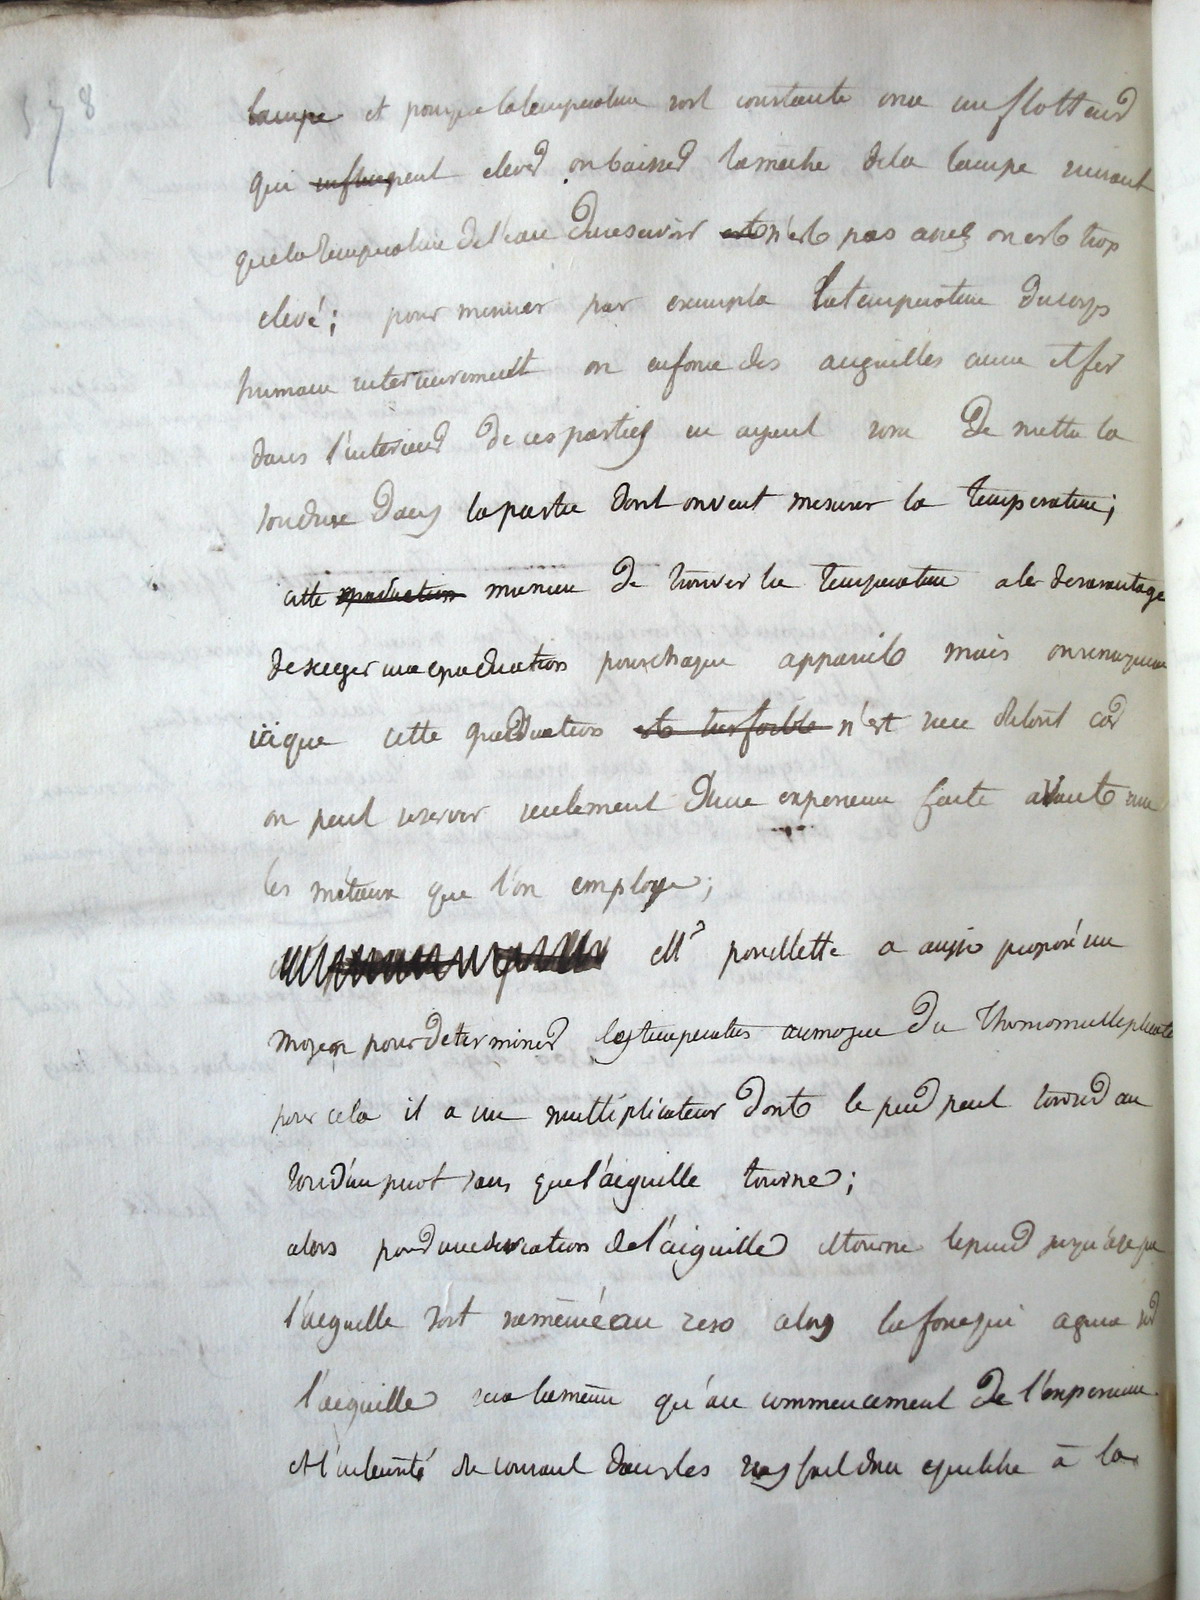 578
lampe et pour que la temperature soit constante on a un flotteur
qui peut elever ou baisser la meche de la lampe suivant
que la temperature de l'eau du reservoir n'est pas assez ou est trop
elevé; pour mesurer par exemple la temperature du corps
humain interieurement on enfonce des aiguilles cuivre et fer
dans l'interieur de ces parties en ayant soin de mettre la
soudure dans la partie dont on veut mesurer la temperature;
cette graduation maniere de trouver la temperature a le desavantage
d'exiger une graduation pour chaque appareil mais on remarquera
ici que cette graduation est tres faible n'est rien du tout car
on peut se servir seulement d'une experience faite avant avec
les métaux que l'on employe;
Mr pouillette a aussi proposé un
moyen pour determiner les temperatures au moyen du Thermomultiplicateur
pour cela il a un multiplicateur dont le pied peut tourner au
tour d'un pivot sans que l'aiguille tourne;
alors pour une deviation de l'aiguille il tourne le pied jusqu'à ce que
l'aiguille soit ramenée au zero alors la force qui agira sur
l'aiguille sera la même qu'au commencement de l'experience
et l'intensité du courant dans les cas fait donc equilibre à la